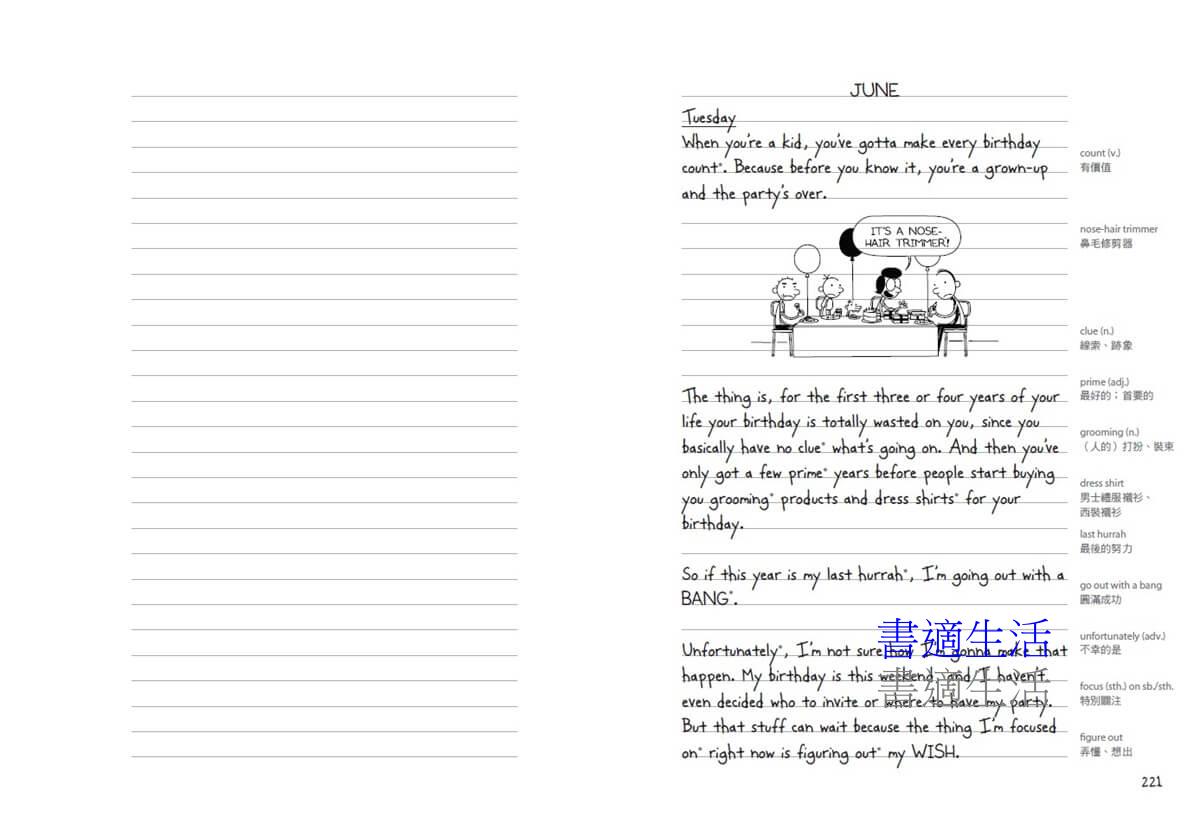 JUNE
Tuesday
When you're a kid, you've gotta make every birthday
count*. Because before you know it, you're a grown-up
and the party's over.
IT'S A NOSE-
HAIR TRIMMER!
The thing is, for the first three or four years of your
life your birthday is totally wasted on you, since you
basically have no clue* what's going on. And then you've
only got a few prime* years before people start buying
you grooming* products and dress shirts* for your
birthday.
So if this year is my last hurrah*, I'm going out with a
BANG*.
Unfortunately*, I'm not sure how I'm gonna make that
happen. My birthday is this weekend, and I haven't
even decided who to invite or where to have my party.
But that stuff can wait because the thing I'm focused
on* right now is figuring out* my WISH.
count (v.)
有價值
nose-hair trimmer
鼻毛修剪器
clue (n.)
線索、跡象
prime (adj.)
最好的；首要的
grooming (n.)
（人的）打扮、裝束
dress shirt
男士禮服襯衫、
西裝襯衫
last hurrah
最後的努力
go out with a bang
圓滿成功
unfortunately (adv.)
不幸的是
focus (sth.) on sb./sth.
特別關注
figure out
弄懂、想出
書適生活
書適生活
221